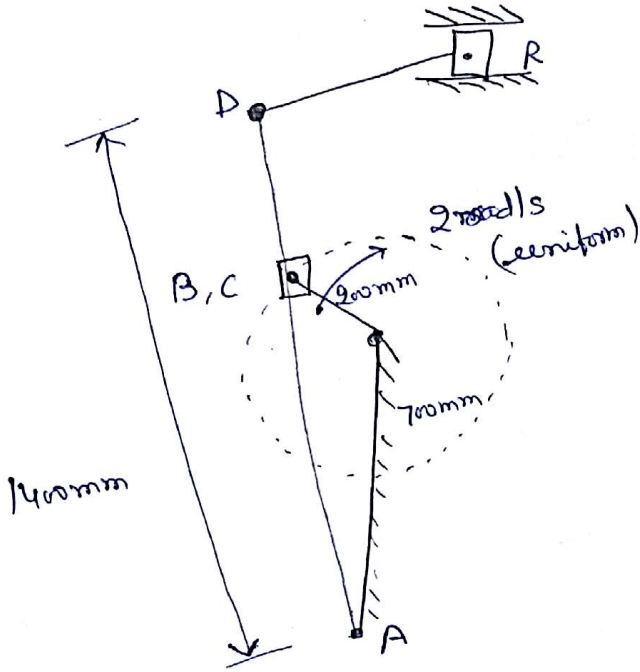 R
D
2rad/s
(uniform)
B, C
200mm
700mm
1400mm
A